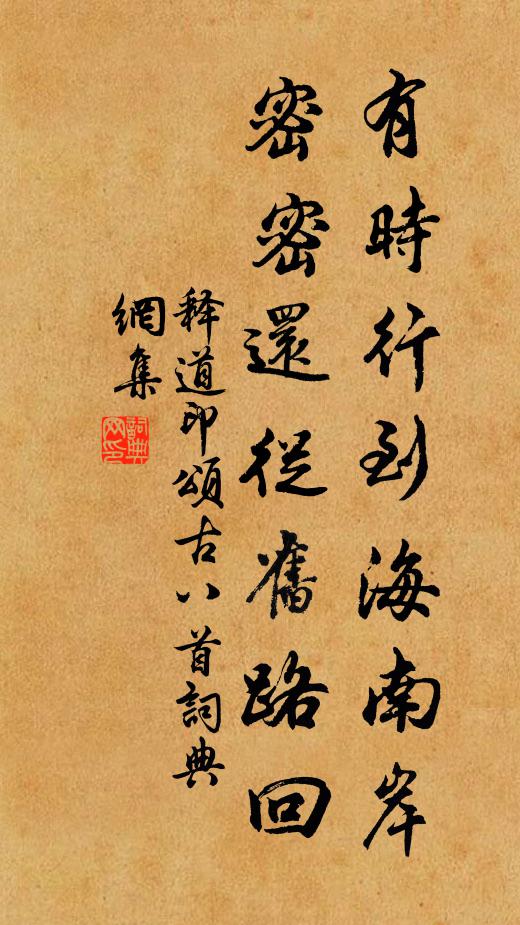 有時行到海南岸
密密還從舊路回
释道印頌古八首詞典
網集
詞典
网印